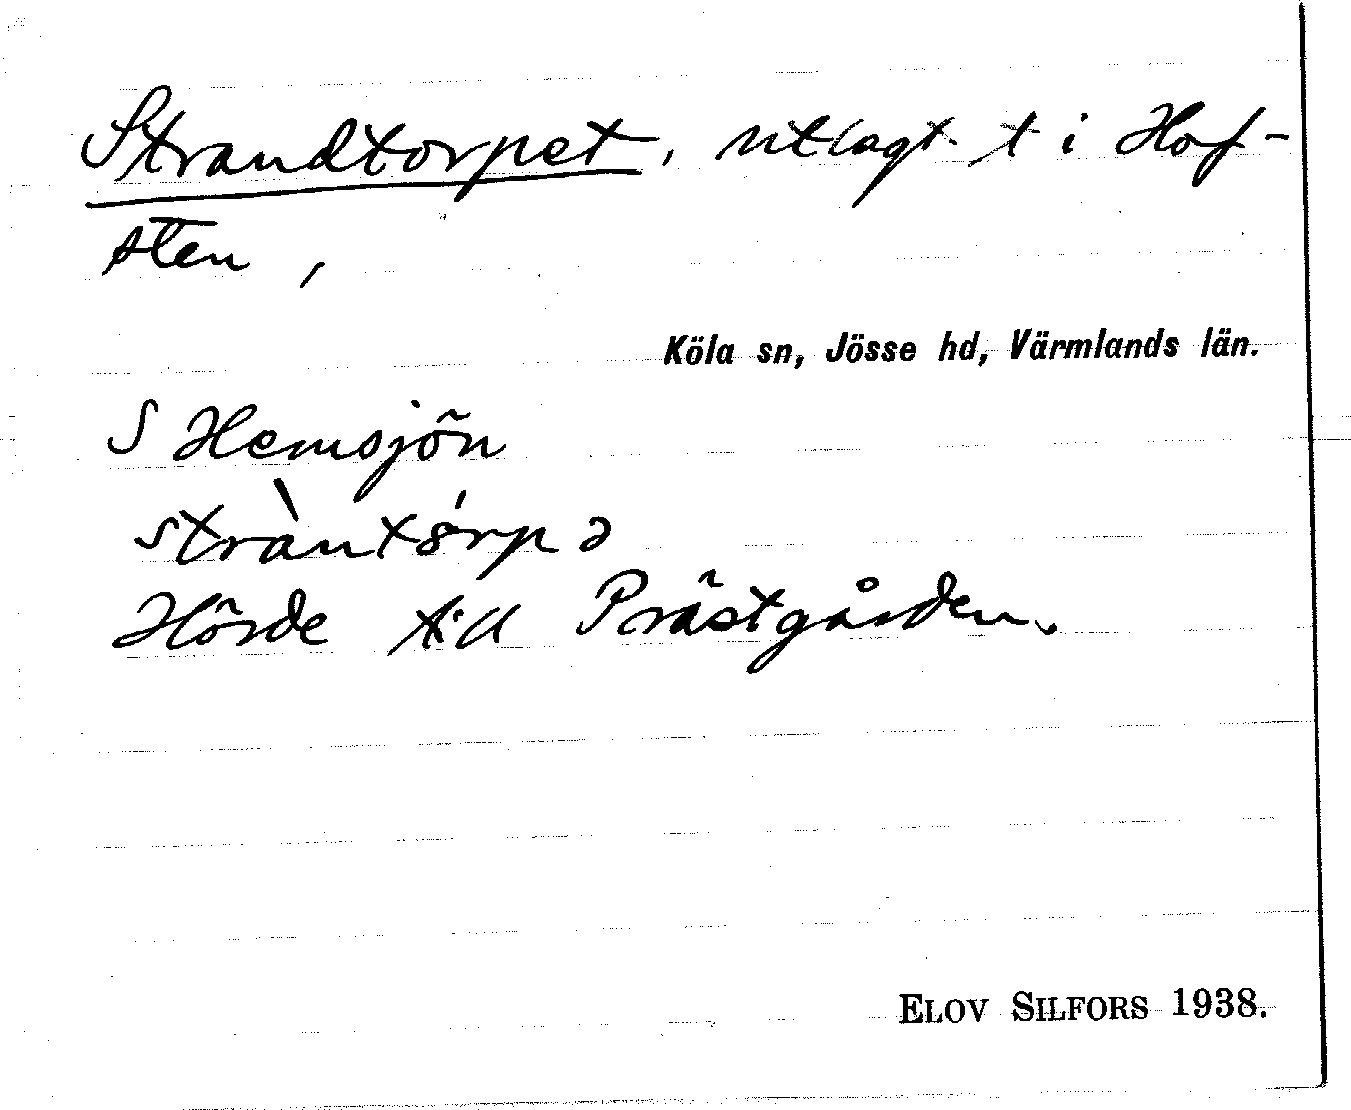 Strandtorpet, utlagt t i Hof-
sten,
Köla sn, Jösse hd, Värmlands län.
S Hemsjön
stràntórpə
Hörde till Prästgården.
ELOV SILFORS 1938.